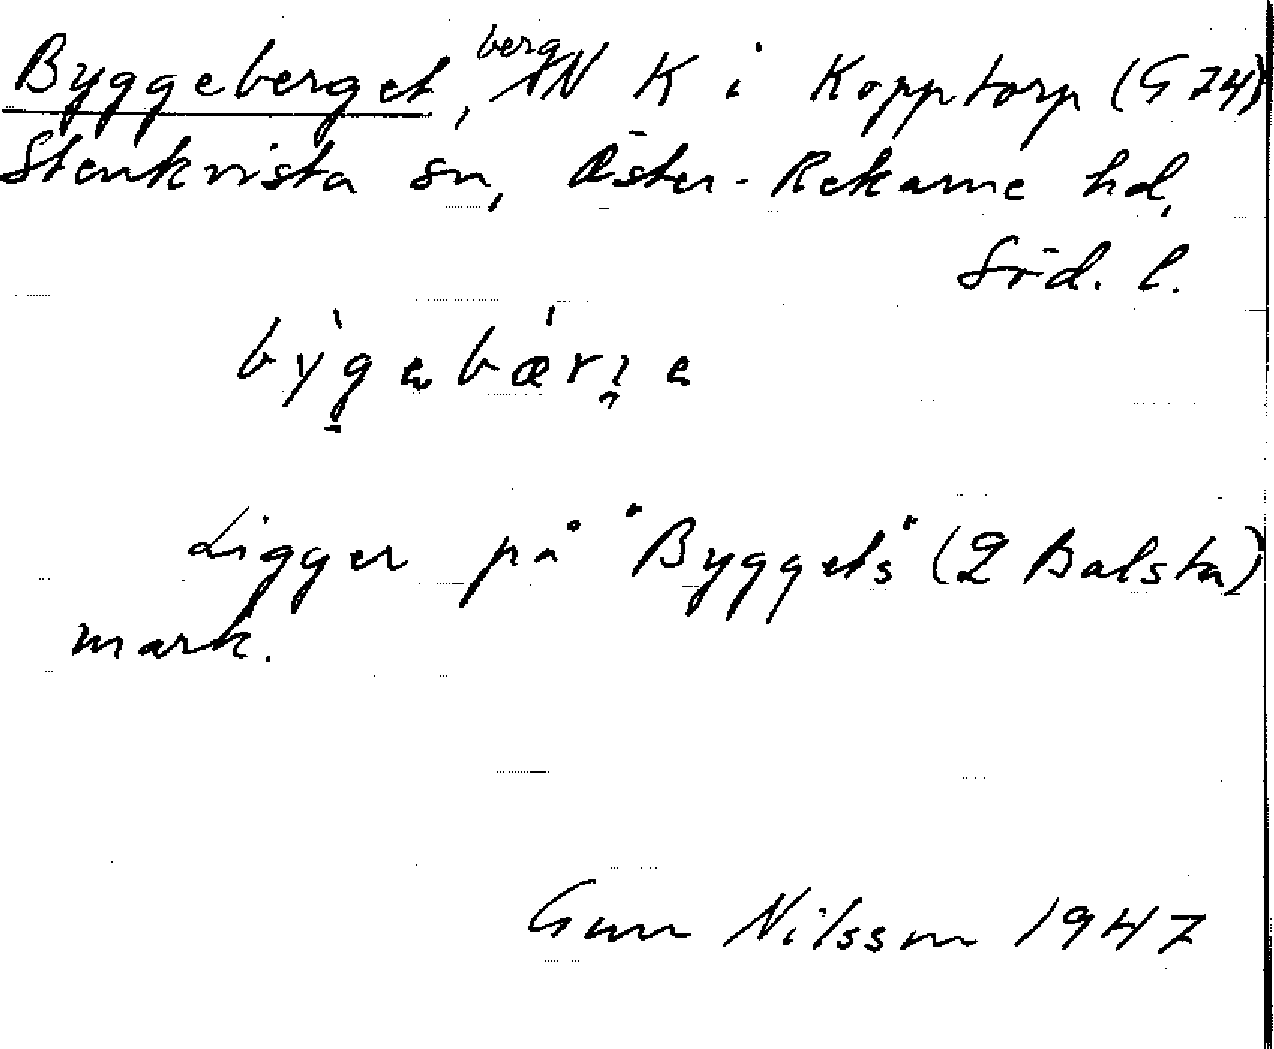 Byggeberget, berg N K i Kopptorp (G 74)
Stenkvista sn, Öster-Rekarne hd,
Söd. l.
Ligger på "Byggets" (2 Balsta)
mark.
Gun Nilsson 1947